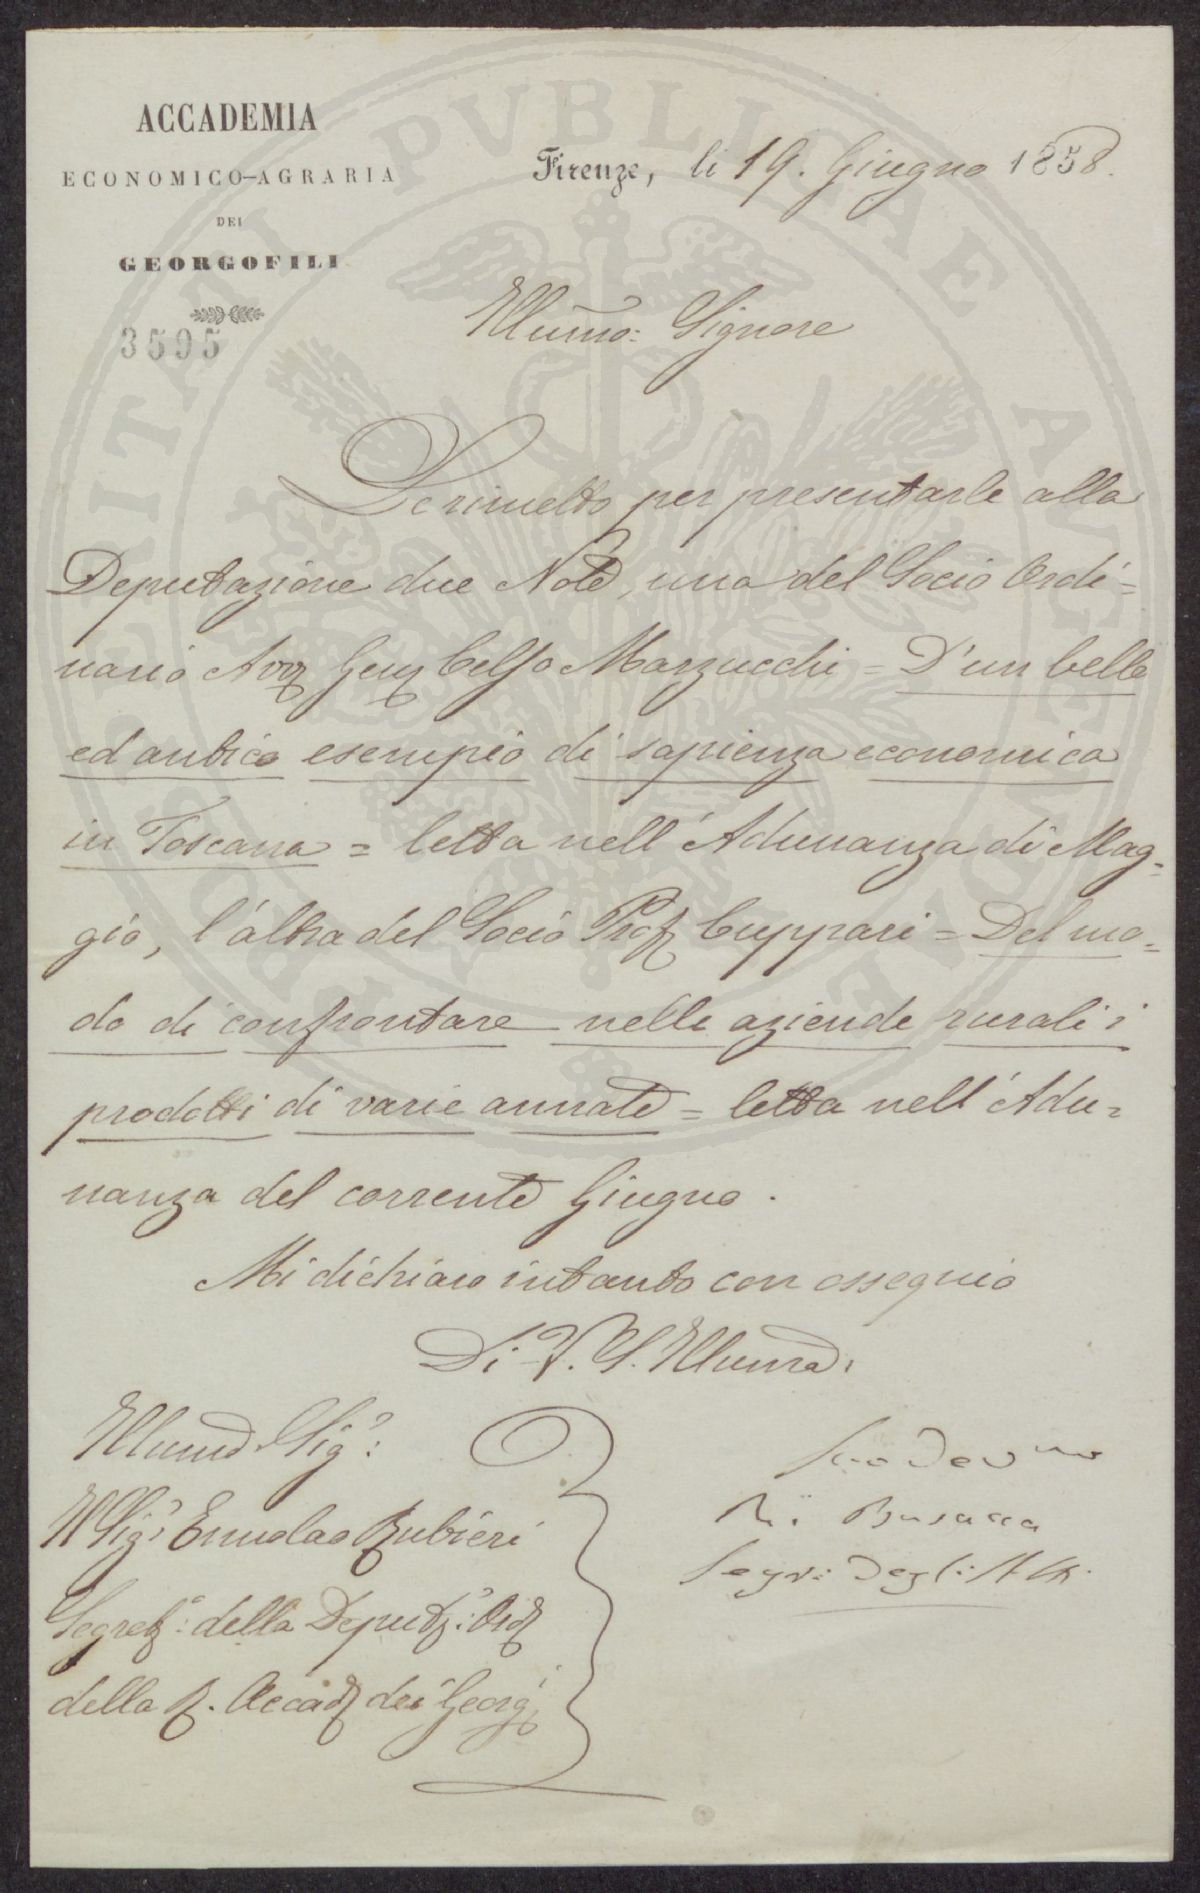 ACCADEMIA
ECONOMICO-AGRARIA
DEI
GEORGOFILI
3595
Firenze, li 19. Giugno 1858.
Illumo: Signore
Le rimetto per presentarle alla
Deputazione due Note, una del Socio Ordi=
nario Avv Celso Marzucchi = D'un bello
ed antico esempio di sapienza economica
in Toscana = letta nell'Adunanza di Mag=
gio, l'altra del Socio Prof Cuppari = Del mo=
do di confrontare nelle aziende rurali i
prodotti di varie annate = letta nell'Adu=
nanza del corrente Giugno.
Mi dichiaro intanto con ossequio
Di V. S. Illuma
Illumo Sigr:
Il Sigr Ermolao Rubieri
Segret: della Deputz: Ord
della R. Accad dei Georgi
Suo Devmo
R. Busacca
Segr: degli Atti
PROSPERITATI PVBLICAE AVGENDAE